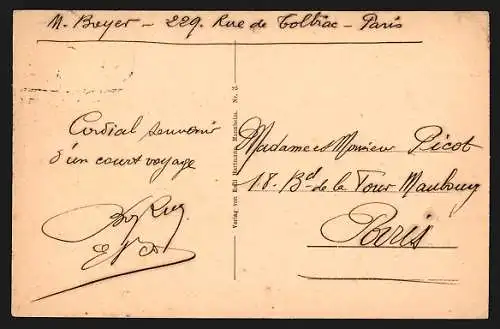 M. Breyer – 229. Rue de Tolbiac – Paris
Cordial souvenir
d'un court voyage
Madame et Monsieur Picot
18. Bd de la Tour Maubourg
Paris
Mannheim. Nr. 3.
Verlag von